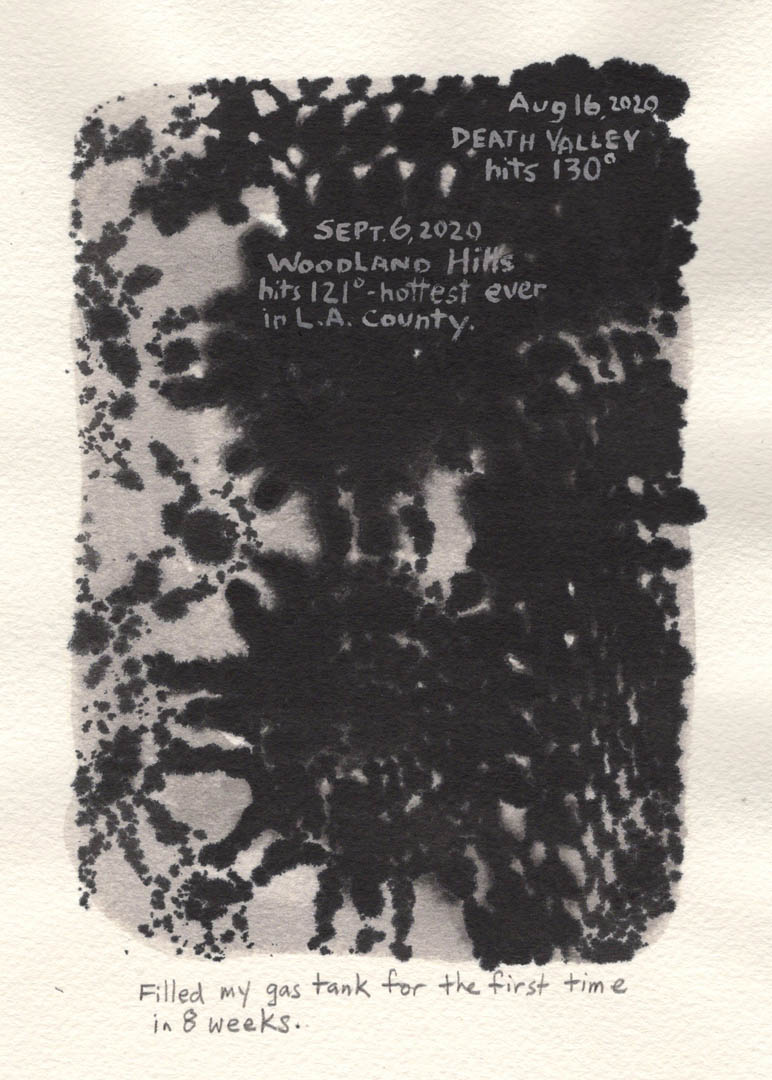 Aug 16, 2020
DEATH VALLEY
hits 130°
SEPT. 6, 2020
WOODLAND Hills
hits 121° - hottest ever
in L.A. County.
Filled my gas tank for the first time
in 8 weeks.